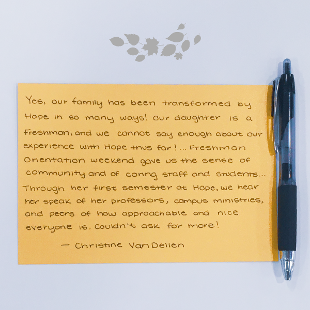 Yes, our family has been transformed by
Hope in so many ways! Our daughter is a
freshman, and we cannot say enough about our
experience with Hope thus far!... Freshman
Orientation weekend gave us the sense of
community and of caring staff and students...
Through her first semester at Hope, we hear
her speak of her professors, campus ministries,
and peers of how approachable and nice
everyone is. Couldn't ask for more!
— Christine VanDellen